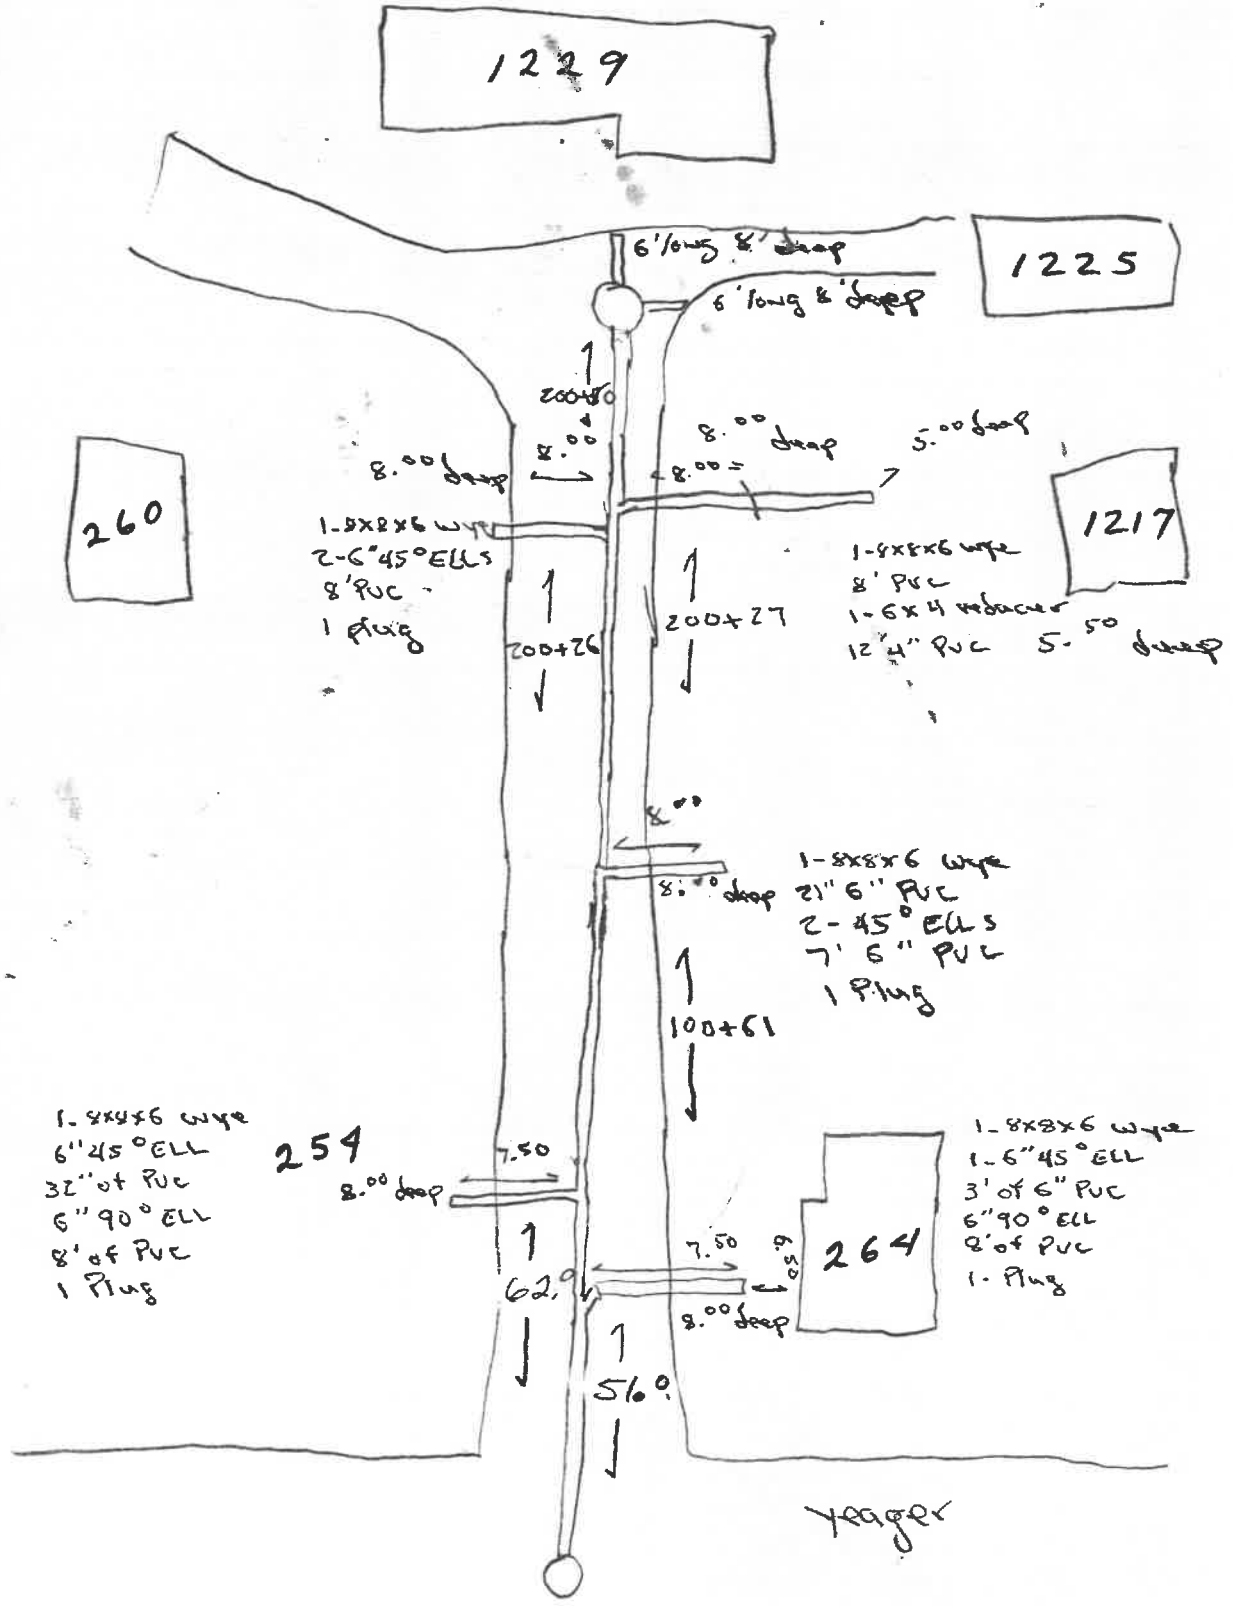 1229
6' long 8' deep
1225
6' long 8' deep
200+50
8.00
8.00 deep
8.00 deep
8.00
5.00 deep
260
1-8x8x6 wye
2-6" 45° ELLS
8' PVC
1 plug
1217
1-8x8x6 wye
8' PVC
1-6x4 reducer
12' 4" PVC 5.50 deep
200+26
200+27
8.00
8.00 deep
1-8x8x6 wye
21" 6" PVC
2-45° ELLS
7' 6" PVC
1 Plug
100+61
1-8x8x6 wye
6" 45° ELL
32" of PVC
6" 90° ELL
8' of PVC
1 Plug
254
7.50
8.00 deep
62.0
7.50
6.50
8.00 deep
264
1-8x8x6 wye
1-6" 45° ELL
3' of 6" PVC
6" 90° ELL
8' of PVC
1-Plug
56.0
Yeager